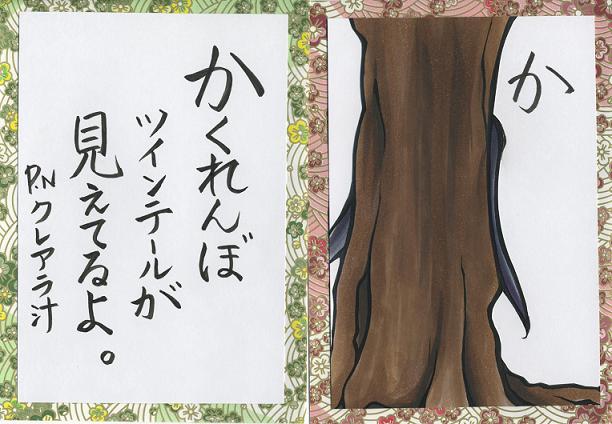 かくれんぼ
ツインテールが
見えてるよ。
P.N クレアラ汁
か